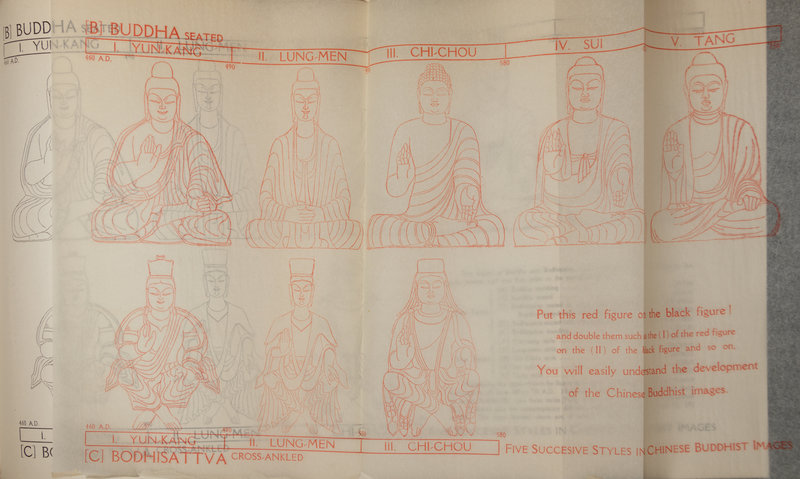 [B] BUDDHA SEATED
[B] BUDDHA SEATED
I. YUN-KANG
I. YUN-KANG
II. LUNG-MEN
III. CHI-CHOU
IV. SUI
V. TANG
460 A.D.
460 A.D.
490
580
Put this red figure on the black figure!
and double them such as the (I) of the red figure
on the (II) of the black figure and so on.
You will easily understand the development
of the Chinese Buddhist images.
460 A.D.
460 A.D.
490
580
I.
I. YUN-KANG
II. LUNG-MEN
II. LUNG-MEN
III. CHI-CHOU
[C] BO
[C] BODHISATTVA CROSS-ANKLED
FIVE SUCCESIVE STYLES IN CHINESE BUDDHIST IMAGES